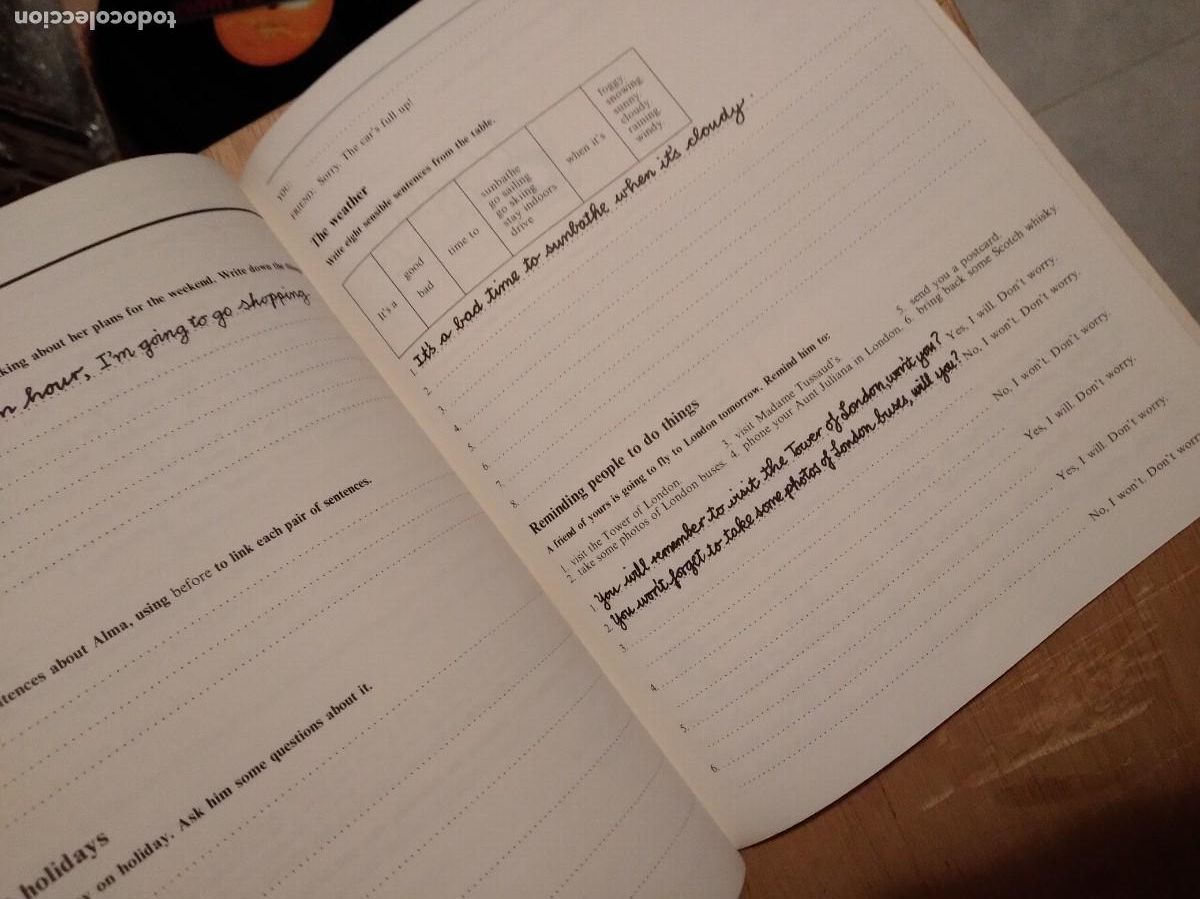 todocoleccion
king about her plans for the weekend. Write down the
n hour, I'm going to go shopping
tences about Alma, using before to link each pair of sentences.
holidays
y on holiday. Ask him some questions about it.
YOU:
FRIEND: Sorry. The car's full up!
The weather
Write eight sensible sentences from the table.
It's a
good
bad
time to
sunbathe
go sailing
go skiing
stay indoors
drive
when it's
foggy.
snowing.
sunny.
cloudy.
raining.
windy.
1. It's a bad time to sunbathe when it's cloudy.
2.
3.
4.
5.
6.
7.
8.
Reminding people to do things
A friend of yours is going to fly to London tomorrow. Remind him to:
1. visit the Tower of London. 3. visit Madame Tussaud's. 5. send you a postcard.
2. take some photos of London buses. 4. phone your Aunt Juliana in London. 6. bring back some Scotch whisky.
1. You will remember to visit the Tower of London, won't you? Yes, I will. Don't worry.
2. You won't forget to take some photos of London buses, will you? No, I won't. Don't worry.
3. No, I won't. Don't worry.
4. Yes, I will. Don't worry.
5. Yes, I will. Don't worry.
6. No, I won't. Don't worry